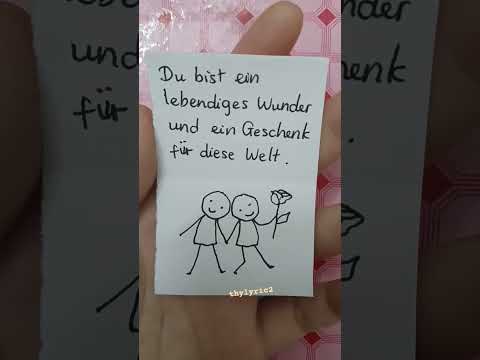 Du bist ein
lebendiges Wunder
und ein Geschenk
für diese Welt.
thylyric2